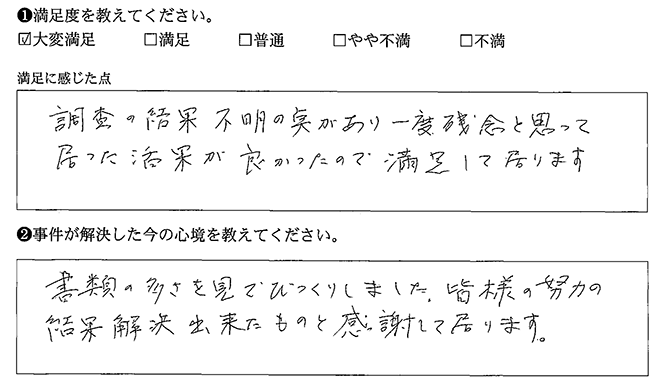 ❶満足度を教えてください。
☑大変満足 □満足 □普通 □やや不満 □不満
満足に感じた点
調査の結果 不明の点があり一度残念と思って
居った 結果が良かったので満足して居ります
❷事件が解決した今の心境を教えてください。
書類の多さを見てびっくりしました。皆様の努力の
結果解決出来たものと感謝して居ります。